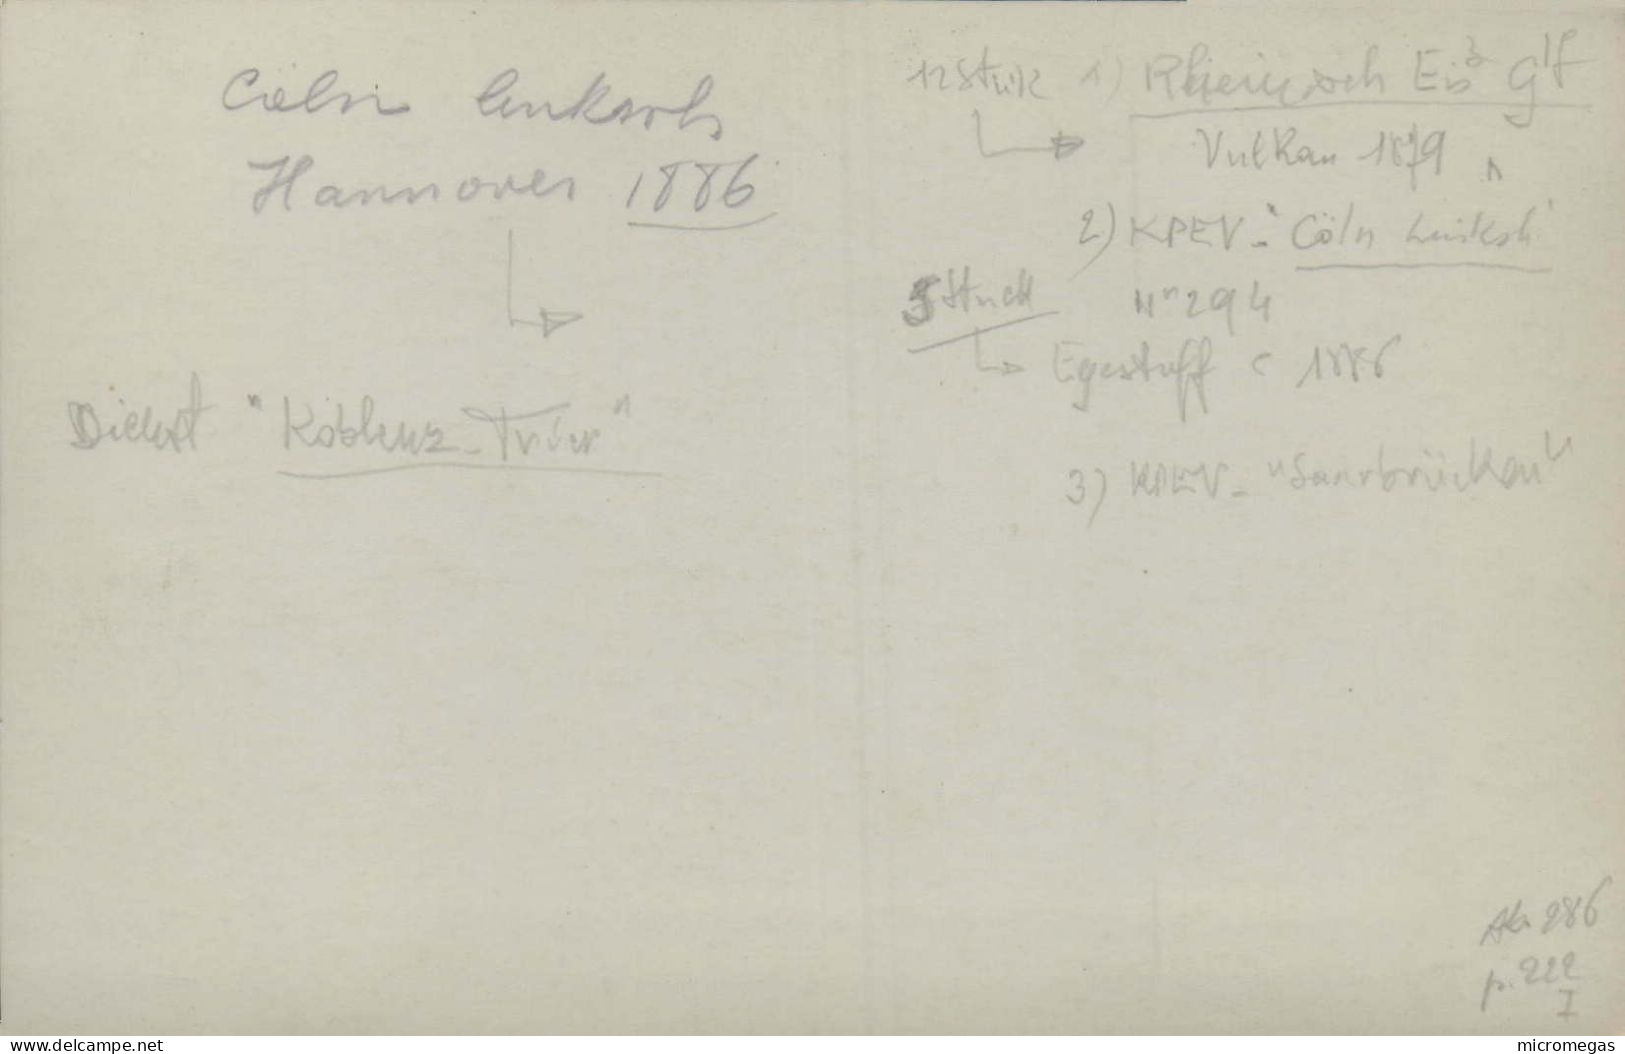 Cöln linksrh
Hannover 1886
Dienst "Koblenz-Trier"
12 Stück 1) Rheinisch Eis Glf
Vulkan 1879
2) KPEV - "Cöln linksrh"
5 Stück N° 294
Egestorff c 1886
3) KPEV - "Saarbrücken"
286
p. 222
I
www.delcampe.net
micromegas